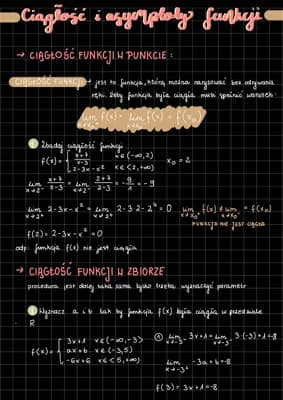 Ciągłość i asymptoty funkcji
→ CIĄGŁOŚĆ FUNKCJI W PUNKCIE :
CIĄGŁOŚĆ FUNKCJI → jest to funkcja, którą można narysować bez odrywania
ręki. Żeby funkcja była ciągła musi spełniać warunek:
lim f(x) = lim f(x) = f(x₀)
① Zbadaj ciągłość funkcji
f(x) = { x+7 / x-3 x∈(-∞,2)
2-3x-x² x∈<2,+∞) x₀ = 2
lim x→2⁻ x+7 / x-3 = lim x→2⁻ 2+7 / 2-3 = -9/1 = -9
lim x→2⁺ 2-3x-x² = lim x→2⁺ 2-3·2-2² = 0 lim f(x) ≠ lim = f(x₀)
FUNKCJA NIE JEST CIĄGŁA
f(2) = 2-3x-x² = 0
odp: funkcja f(x) nie jest ciągła
→ CIĄGŁOŚĆ FUNKCJI W ZBIORZE
procedura jest dalej taka sama tylko trzeba wyznaczyć parametr
① Wyznacz a i b tak by funkcja f(x) była ciągła w przedziale
R
f(x) = { 3x+1 x∈(-∞,-3) ① lim x→-3⁻ 3x+1 = lim x→-3⁻ 3·(-3)+1 = -8
ax+b x∈<-3,5)
-6x+6 x∈<5,+∞) lim x→-3⁺ -3a+b = -8
f(3) = 3x+1 = -8